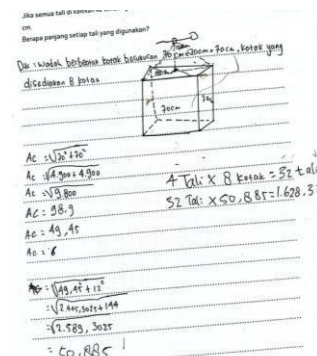 Jika semua tali di kaitkan
cm.
Berapa panjang setiap tali yang digunakan?
Dik : Wadah berbentuk kotak berukuran 70 cm x 70cm x 70cm, kotak yang
disediakan 8 kotak
70cm
AC = √70² + 70²
AC = √4.900 + 4.900
AC = √9.800
AC = 98,9
AO = 49,45
4 Tali x 8 kotak = 32 tali
32 Tali x 50,885 = 1.628,3
= √49,45² + 12²
= √2.445,3025 + 144
= √2.589,3025
= 50,885